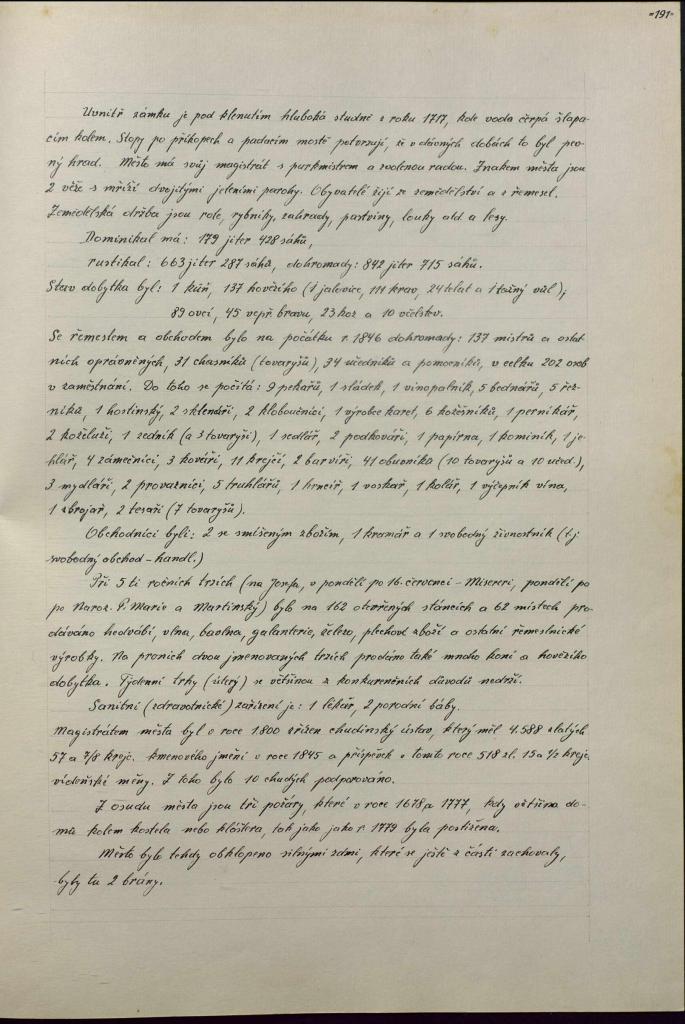 -191-
Uvnitř zámku je pod klenutím hluboká studně z roku 1717, kde voda čerpá šlapa-
cím kolem. Stopy po příkopech a padacím mostě potvrzují, že v dávných dobách to byl pev-
ný hrad. Město má svůj magistrát s purkmistrem a zvolenou radou. Znakem města jsou
2 věže s mříží dvojitými jeleními parohy. Obyvatelé žijí ze zemědělství a z řemesel.
Zemědělská držba jsou role, rybníky, zahrady, pastviny, louky atd a lesy.
Dominikal má: 179 jiter 428 sáhů,
rustikal: 663 jiter 287 sáhů, dohromady: 842 jiter 715 sáhů.
Stav dobytka byl: 1 kůň, 137 hovězího (1 jalovice, 111 krav, 24 telat a 1 tažný vůl);
89 ovcí, 45 vepř. bravu, 23 koz a 10 včelstev.
Se řemeslem a obchodem bylo na počátku r. 1846 dohromady: 137 mistrů a ostat-
ních oprávněných, 31 chasníků (tovaryšů), 34 učedníků a pomocníků, v celku 202 osob
v zaměstnání. Do toho se počítá: 9 pekařů, 1 sládek, 1 vinopalník, 5 bednářů, 5 řez-
níků, 1 hostinský, 2 sklenáři, 2 kloboučníci, 1 výrobce karet, 6 kožešníků, 1 perníkář,
2 koželuzi, 1 zedník (a 3 tovaryši), 1 sedlář, 2 podkováři, 1 papírna, 1 kominík, 1 je-
hlář, 4 zámečníci, 3 kováři, 11 krejčí, 2 barvíři, 41 obuvníků (10 tovaryšů a 10 učed.),
3 mydláři, 2 provazníci, 5 truhlářů, 1 hrnčíř, 1 voskař, 1 kolář, 1 výčepník vína,
1 zbrojař, 2 tesaři (7 tovaryšů).
Obchodníci byli: 2 se smíšeným zbožím, 1 kramář a 1 svobodný živnostník (t.j
svobodný obchod - handl.)
Při 5 ti ročních trzích (na Josefa, v pondělí po 16. červenci - Misereri, pondělí po
po Naroz. P. Marie a Martinský) bylo na 162 otevřených stáncích a 62 místech pro-
dáváno hedvábí, vlna, bavlna, galanterie, železo, plechové zboží a ostatní řemeslnické
výrobky. Na prvních dvou jmenovaných trzích prodáno také mnoho koní a hovězího
dobytka. Týdenní trhy (úterý) se většinou z konkurenčních důvodů nedrží.
Sanitní (zdravotnické) zařízení je: 1 lékař, 2 porodní báby.
Magistrátem města byl v roce 1800 zřízen chudinský ústav, který měl 4.588 zlatých
57 a 7/8 krejc. kmenového jmění v roce 1845 a příspěvek v tomto roce 518 zl. 15 a 1/2 krejc.
vídeňské měny. Z toho bylo 10 chudých podporováno.
Z osudu města jsou tři požáry, které v roce 1678, a 1777, kdy většina do-
mů kolem kostela nebo kláštera, tak jako jako r. 1779 byla postižena.
Město bylo tehdy obklopeno silnými zdmi, které se ještě z části zachovaly,
byly tu 2 brány.